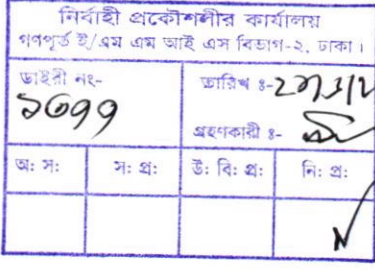 নির্বাহী প্রকৌশলীর কার্যালয়
গণপূর্ত ই/এম এম আই এস বিভাগ-২, ঢাকা।
ডাইরী নং- তারিখ ঃ-
১৩৭৭
গ্রহণকারী ঃ-
অ: স: স: প্র: উ: বি: প্র: নি: প্র: